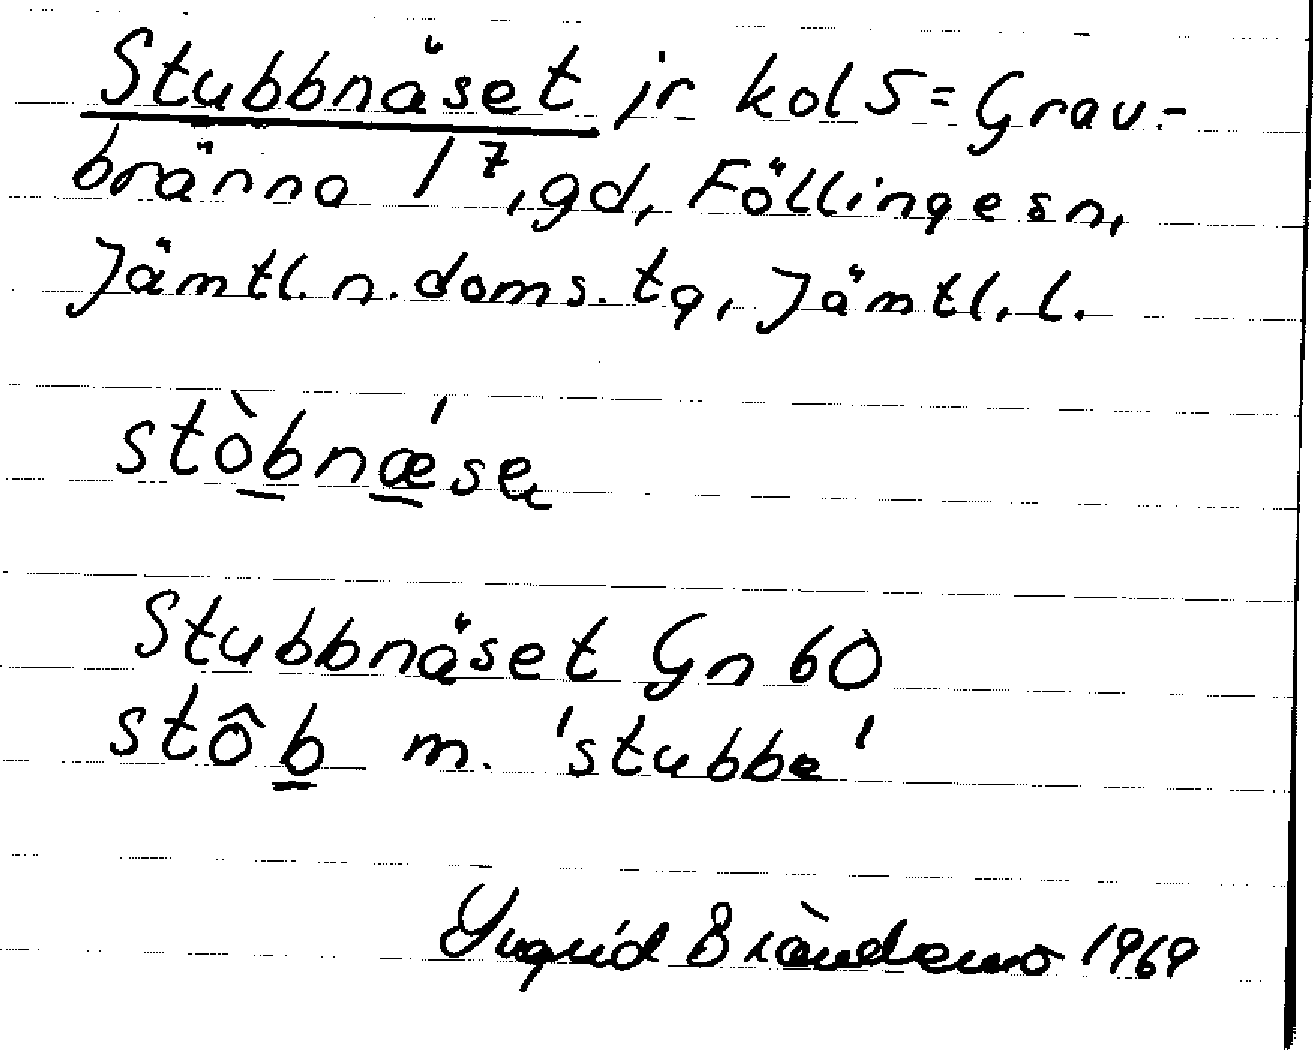 Stubbnäset jr kol 5 = Grav-
bränna 1⁷, gd, Föllinge sn,
Jämtl. n. doms. tg, Jämtl. l.
stò̲bnǽ̲se
Stubbnäset Gn 60
stôb̲ m. 'stubbe'
Yngvid Brändemo 1969